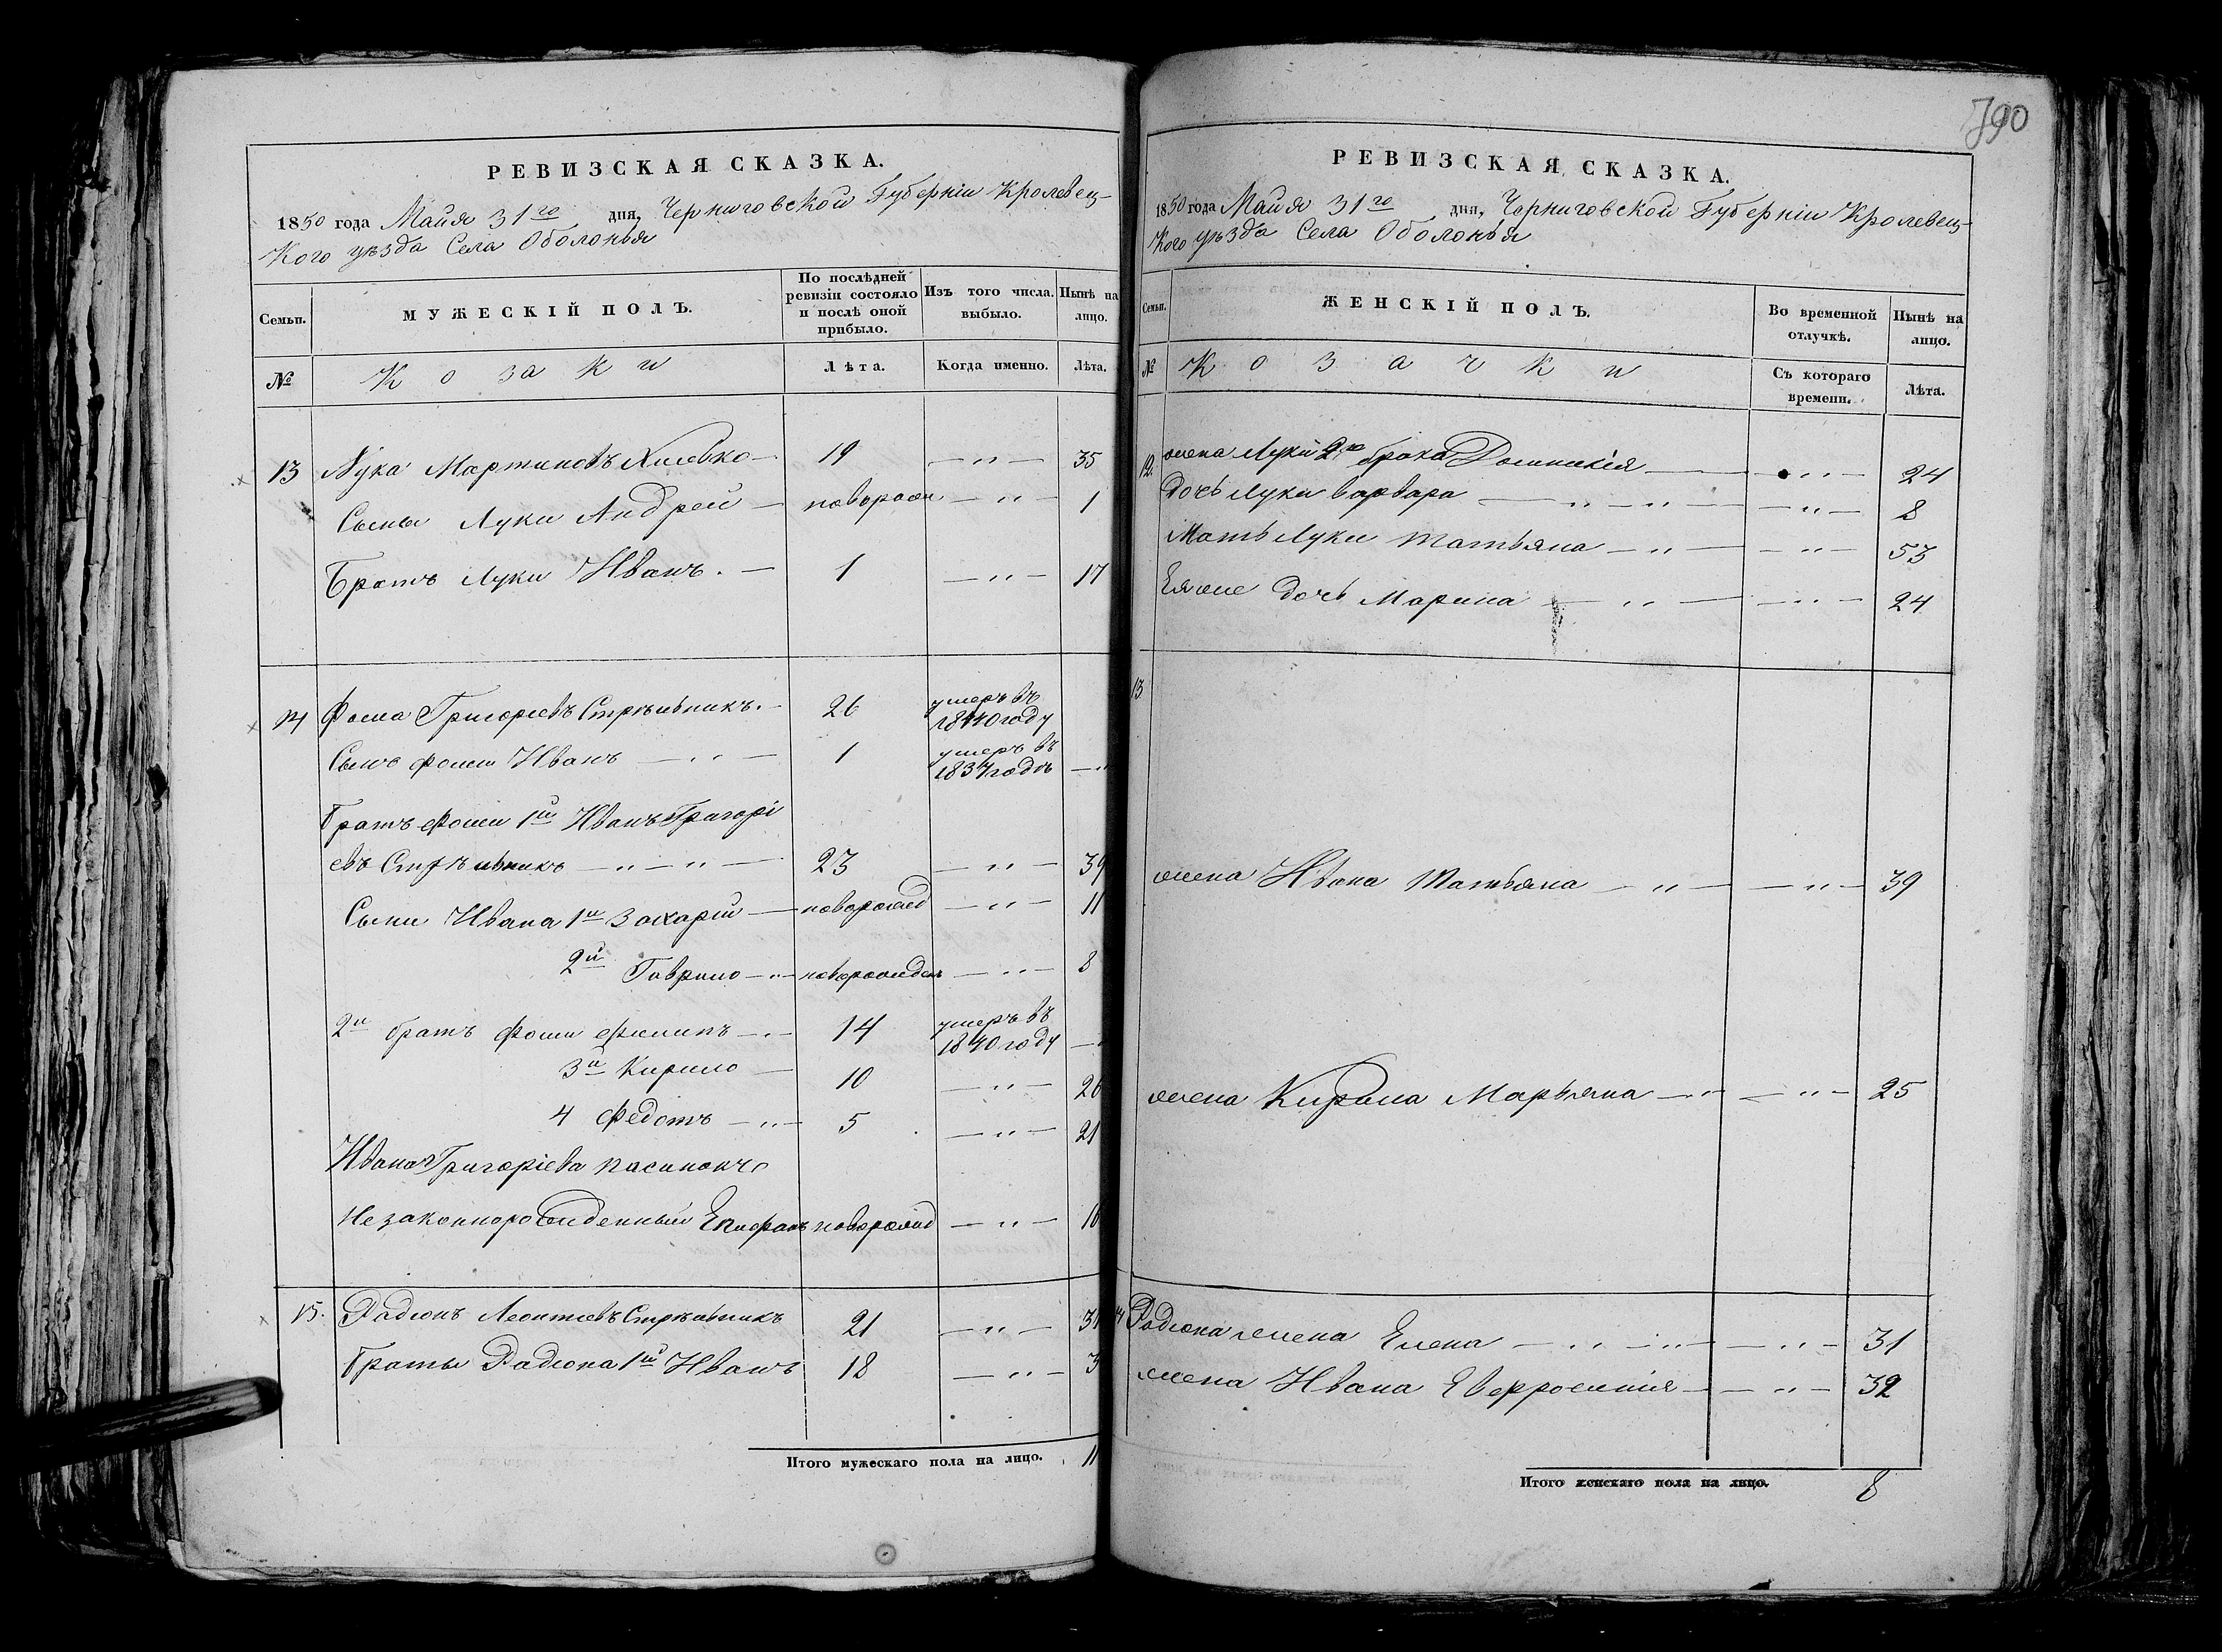 РЕВИЗСКАЯ СКАЗКА.
1850 года Майя 31го дня, Черниговской Губерніи Кролевец-
кого уѣзда Села Оболонья
Семьи.
МУЖЕСКІЙ ПОЛЪ.
По послѣдней ревизіи состояло и послѣ оной прибыло.
Изъ того числа выбыло.
Нынѣ на лицо.
№
Козаки
Лѣта.
Когда именно.
Лѣта.
13 Лука Мартиновъ 19 — " — 35
Сыны Луки Андрей — — " — 1
Братъ Луки Иванъ. — 1 — " — 17
14 Фома Григоріевъ Стрѣльникъ. — 26 умеръ въ 1840 году
Сынъ Фоми Иванъ — " — 1 умеръ въ году — "
Братъ Фоми 1й Иванъ Григорі
евъ Стрѣльникъ — " — " — 23 — " — 39
Сыни Ивана 1й Захарій — новорожд — " — 11
2й Гаврило — " — новорожден — " — 8
2й братъ Фоми Филипъ — " — 14 умеръ въ 1840 году —
3й Кирило — 10 — " — 26
4 Федотъ — " — 5 — " — 21
Ивана Григоріева пасинокъ
Незаконнорожденный Епифанъ новорожд — " — 16
15. Радіонъ Леонтіевъ Стрѣльникъ 21 — " —
Браты Радіона 1й Иванъ 18 — " —
Итого мужескаго пола на лицо. 11
790
РЕВИЗСКАЯ СКАЗКА.
1850 года Майя 31го дня, Черниговской Губерніи Кролевец-
кого уѣзда Села Оболонья
Семьи.
ЖЕНСКІЙ ПОЛЪ.
Во временной отлучкѣ.
Нынѣ на лицо.
№
Козачки
Съ котораго времени.
Лѣта.
12. жена Луки 2го брака Домникія — — " — 24
Дочь Луки Варвара — " — " — — " — 8
Мать Луки Татьяна — " — — " — 53
Ея же дочь Марина — " — — " — 24
13
жена Ивана Татьяна — " — — " — 39
жена Кирила Марьяна — " — " — 25
14 Радіона жена Елена — " — " — — " — 31
жена Ивана Евфросинія — — " — 32
Итого женскаго пола на лицо. 8